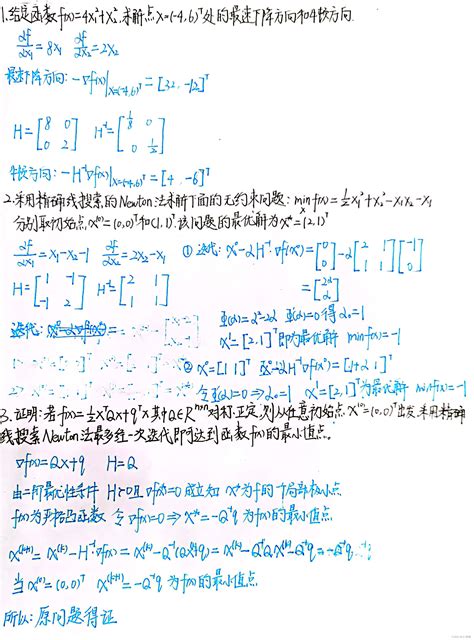 1.给定函数f(x)=4x₁²+x₂², 求解点 x=(-4,6)ᵀ处的最速下降方向和牛顿方向.
∂f/∂x₁=8x₁ ∂f/∂x₂=2x₂
最速下降方向: -∇f(x)|x=(-4,6)ᵀ = [32, -12]ᵀ
H=[8 0; 0 2] H⁻¹=[1/8 0; 0 1/2]
牛顿方向: -H⁻¹∇f(x)|x=(-4,6)ᵀ = [4, -6]ᵀ
2.采用精确线搜索的Newton法求解下面的无约束问题: min f(x)=½x₁²+x₂²-x₁x₂-x₁
x
分别取初始点x⁽⁰⁾=(0,0)ᵀ和(1,1)ᵀ,该问题的最优解为x*=(2,1)ᵀ
∂f/∂x₁=x₁-x₂-1 ∂f/∂x₂=2x₂-x₁ ① 迭代: x⁰-αH⁻¹·∇f(x⁰)=[0; 0]-α[2 1; 1 1][-1; 0]
H=[1 -1; -1 2] H⁻¹=[2 1; 1 1] =[2α; α]
迭代:
x¹=[2,1]ᵀ即为最优解 min f(x)=-1
② x⁰=[1 1]ᵀ x⁰-αH⁻¹∇f(x⁰)=[1+α 1]ᵀ
x¹=[2,1]ᵀ为最优解 min f(x)=-1
3.证明:若f(x)=½xᵀQx+qᵀx 其中Q∈Rⁿˣⁿ对称正定,则从任意初始点x⁽⁰⁾=(0,0)ᵀ出发,采用精确
线搜索Newton法最多经一次迭代即可达到函数f(x)的最小值点.
∇f(x)=Qx+q H=Q
f(x)为严格凸函数 令∇f(x)=0⇒x*=-Q⁻¹q 为f(x)的最小值点
当x⁽⁰⁾=(0,0)ᵀ x⁽ᵏ⁺¹⁾=-Q⁻¹q 为f(x)的最小值点.
所以:原问题得证